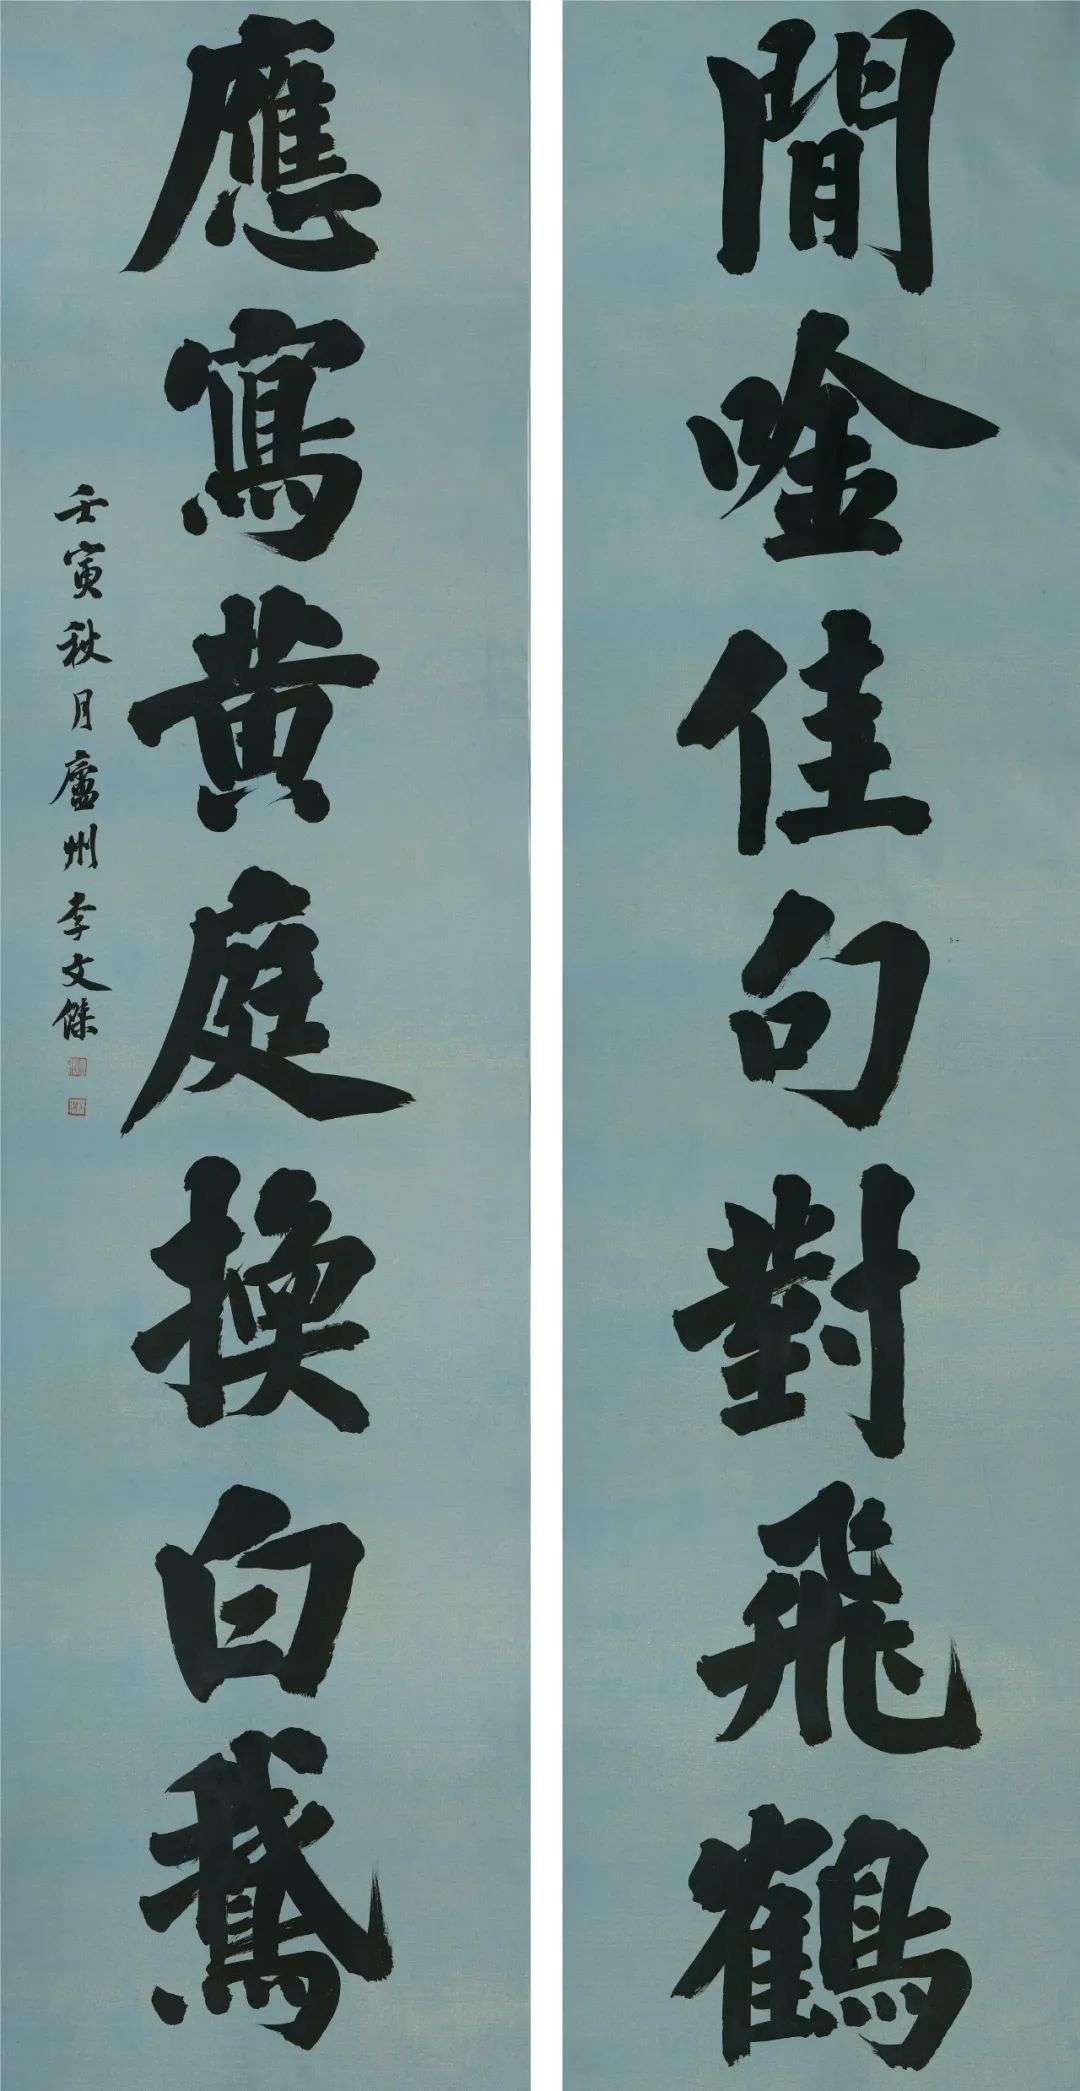 閒唫佳句對飛鶴
應寫黃庭換白鵞
壬寅秋月廬州李文傑